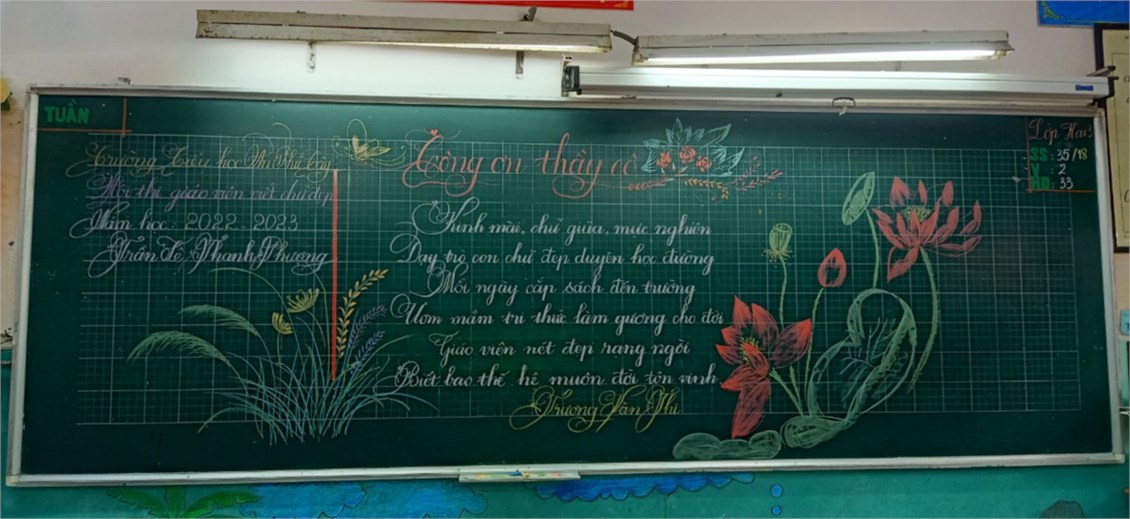 TUẦN
Trường Tiểu học An Phú Tây
Hội thi giáo viên viết chữ đẹp
Năm học: 2022 - 2023
Trần Lê Thanh Phượng
Công ơn thầy cô
Kính mài, chữ giũa, mực nghiên
Dạy trò con chữ đẹp duyên học đường
Mỗi ngày cắp sách đến trường
Ươm mầm tri thức làm gương cho đời
Giáo viên nét đẹp rạng ngời
Biết bao thế hệ muôn đời tôn vinh
Trương Văn Thi
Lớp Hai
SS: 35/18
V: 2
HD: 33